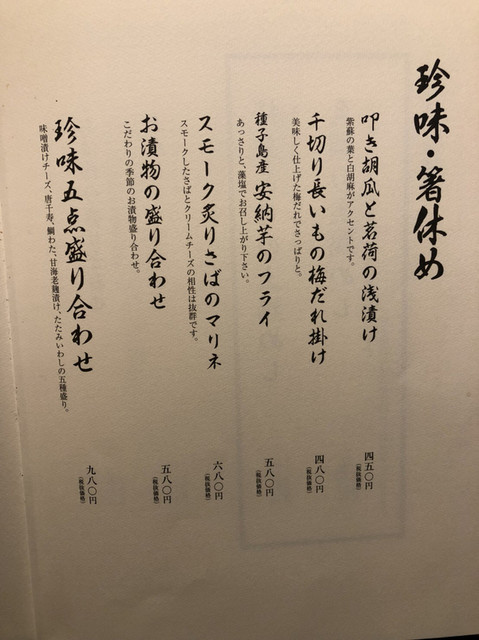 珍味・箸休め
叩き胡瓜と茗荷の浅漬け
紫蘇の葉と白胡麻がアクセントです。
四五〇円
(税抜価格)
千切り長いもの梅だれ掛け
美味しく仕上げた梅だれでさっぱりと。
四八〇円
(税抜価格)
種子島産 安納芋のフライ
あっさりと、藻塩でお召し上がり下さい。
五八〇円
(税抜価格)
スモーク炙りさばのマリネ
スモークしたさばとクリームチーズの相性は抜群です。
六八〇円
(税抜価格)
お漬物の盛り合わせ
こだわりの季節のお漬物盛り合わせ。
五八〇円
(税抜価格)
珍味五点盛り合わせ
味噌漬けチーズ、唐千寿、鯛わた、甘海老麹漬け、たたみいわしの五種盛り。
九八〇円
(税抜価格)